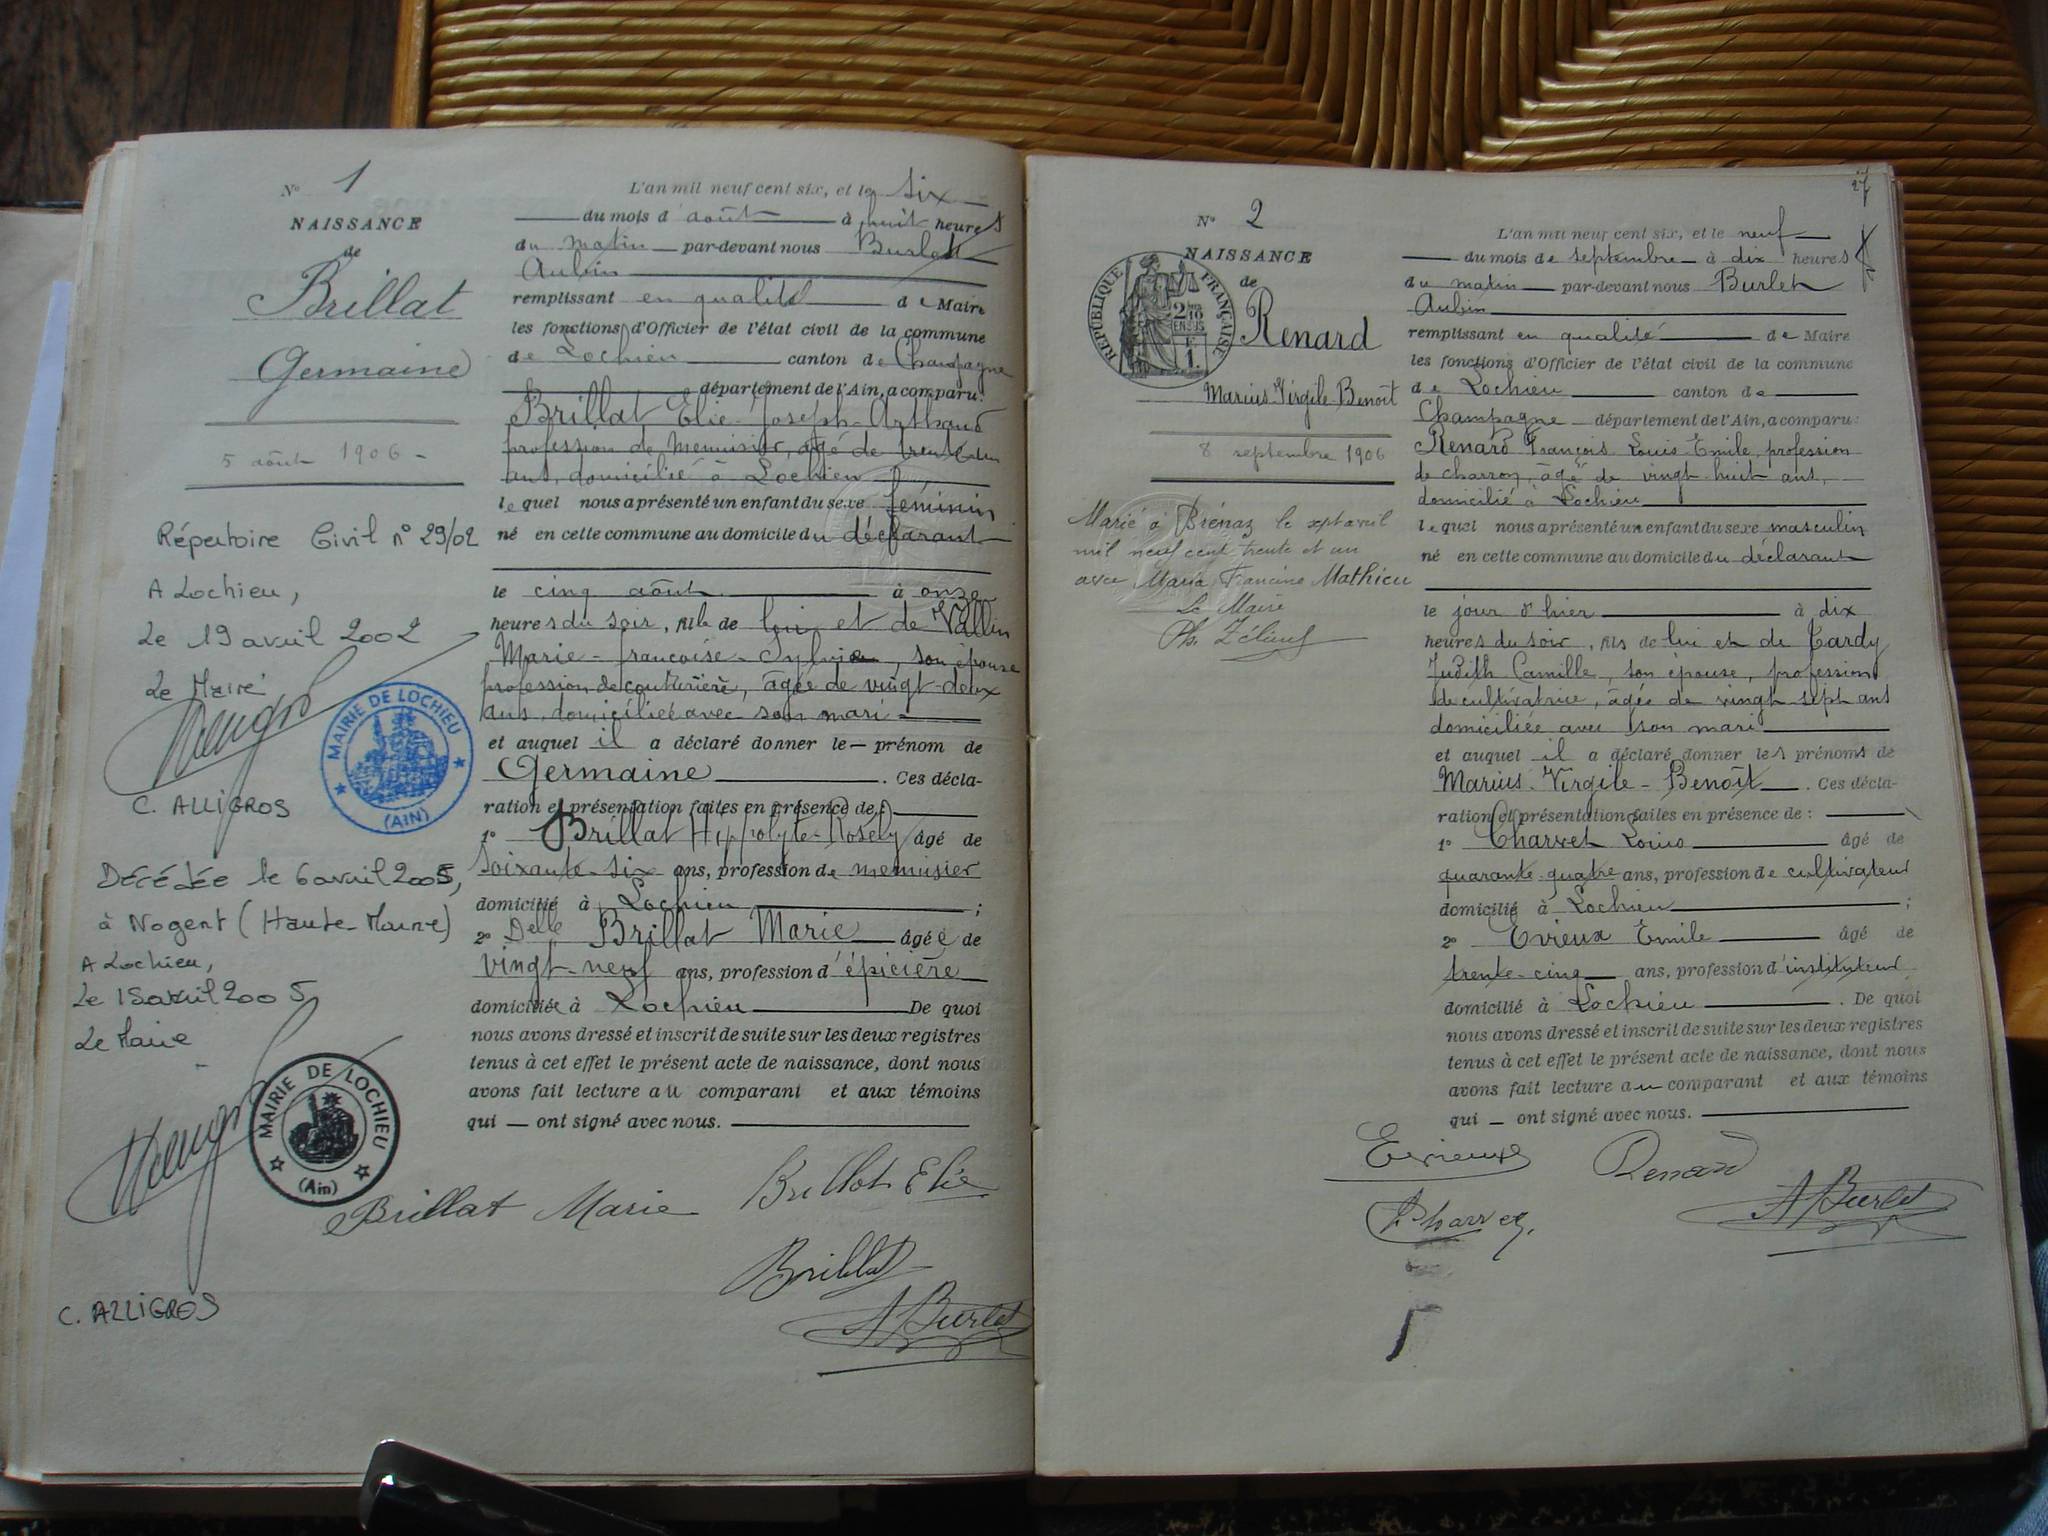 N° 1
NAISSANCE
de
Brillat
Germaine
5 août 1906
Répertoire Civil n° 29/02
A Lochieu,
Le 19 avril 2002
Le Maire
MAIRIE DE LOCHIEU
(AIN)
C. ALLIGROS
Décédée le 6 avril 2005,
à Nogent (Haute-Marne)
A Lochieu,
Le 15 avril 2005
Le Maire
MAIRIE DE LOCHIEU
(Ain)
C. ALLIGROS
L'an mil neuf cent six, et le six
du mois d'août à huit heures
du matin par-devant nous Burlet
Aubin
remplissant en qualité de Maire
les fonctions d'Officier de l'état civil de la commune
de Lochieu canton de Champagne
département de l'Ain, a comparu:
Brillat Elie-Joseph-Arthaud
profession de menuisier, âgé de trente
ans, domicilié à Lochieu
lequel nous a présenté un enfant du sexe féminin
né en cette commune au domicile du déclarant
le cinq août à onze
heures du soir, fille de lui et de Vallin
Marie-françoise-Sylvie, son épouse
profession de couturière, âgée de vingt-deux
ans, domiciliée avec son mari
et auquel il a déclaré donner le prénom de
Germaine. Ces décla-
ration et présentation faites en présence de:
1° Brillat Hippolyte-Rosely âgé de
soixante-six ans, profession de menuisier
domicilié à Lochieu ;
2° Delle Brillat Marie âgée de
vingt-neuf ans, profession d'épicière
domiciliée à Lochieu De quoi
nous avons dressé et inscrit de suite sur les deux registres
tenus à cet effet le présent acte de naissance, dont nous
avons fait lecture au comparant et aux témoins
qui ont signé avec nous.
Brillat Marie Brillat Elie
Brillat
A Burlet
27
N° 2
NAISSANCE
de
RÉPUBLIQUE FRANÇAISE
2/10 EN SUS
1 F
Renard
Marius-Virgile-Benoît
8 septembre 1906
Marié à Brénaz le sept avril
mil neuf cent trente et un
avec Maria Francine Mathieu
Le Maire
L'an mil neuf cent six, et le neuf
du mois de septembre à dix heures
du matin par-devant nous Burlet
Aubin
remplissant en qualité de Maire
les fonctions d'Officier de l'état civil de la commune
de Lochieu canton de
Champagne département de l'Ain, a comparu:
Renard François Louis Emile, profession
de charron, âgé de vingt huit ans,
domicilié à Lochieu
lequel nous a présenté un enfant du sexe masculin
né en cette commune au domicile du déclarant
le jour d'hier à dix
heures du soir, fils de lui et de Tardy
Judith Camille, son épouse, profession
de cultivatrice, âgée de vingt sept ans
domiciliée avec son mari
et auquel il a déclaré donner les prénoms de
Marius-Virgile-Benoît. Ces décla-
ration et présentation faites en présence de :
1° Charvet Louis âgé de
quarante-quatre ans, profession de cultivateur
domicilié à Lochieu ;
2° Evieux Emile âgé de
trente-cinq ans, profession d'instituteur
domicilié à Lochieu. De quoi
nous avons dressé et inscrit de suite sur les deux registres
tenus à cet effet le présent acte de naissance, dont nous
avons fait lecture au comparant et aux témoins
qui ont signé avec nous.
Evieux Renard
Charvet A Burlet